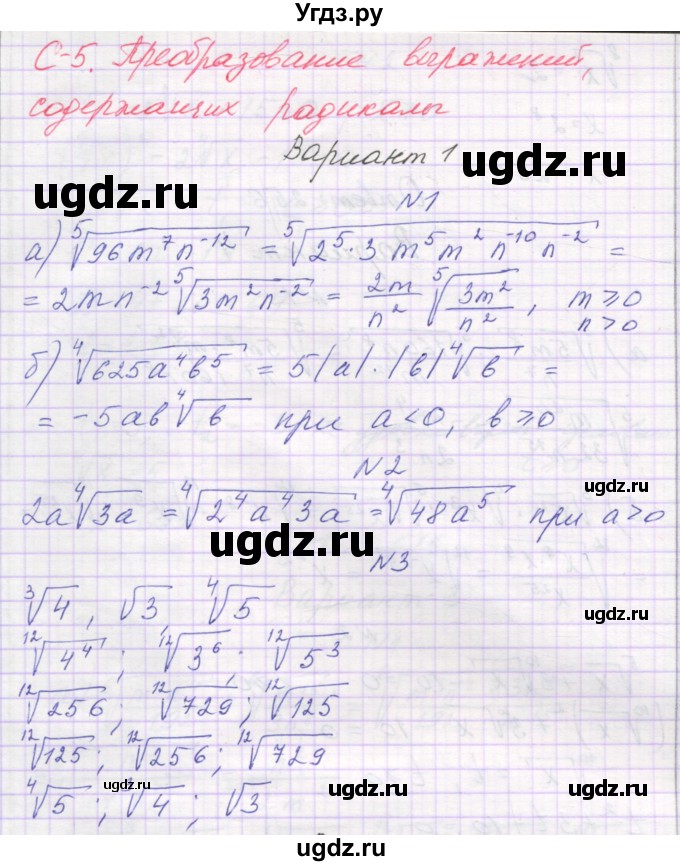 Угдз.ру
С-5. Преобразование выражений,
содержащих радикалы
Вариант 1
ugdz.ru
ugdz.ru
ugdz.ru
№1
а) ⁵√(96m⁷n⁻¹²) = ⁵√(2⁵·3 m⁵m²n⁻¹⁰n⁻²) =
= 2mn⁻² ⁵√(3m²n⁻²) = 2m/n² ⁵√(3m²/n²), m⩾0
n>0
б) ⁴√(625a⁴b⁵) = 5|a|·|b| ⁴√b =
= -5ab ⁴√b при a<0, b⩾0
№2
ugdz.ru
2a ⁴√(3a) = ⁴√(2⁴a⁴3a) = ⁴√(48a⁵) при a>0
ugdz.ru
№3
³√4, √3 ⁴√5
ugdz.ru
¹²√(4⁴); ¹²√(3⁶). ¹²√(5³)
¹²√256; ¹²√729; ¹²√125
¹²√125; ¹²√256; ¹²√729
ugdz.ru
ugdz.ru
⁴√5; ³√4; √3
ugdz.ru
Угдз.ру